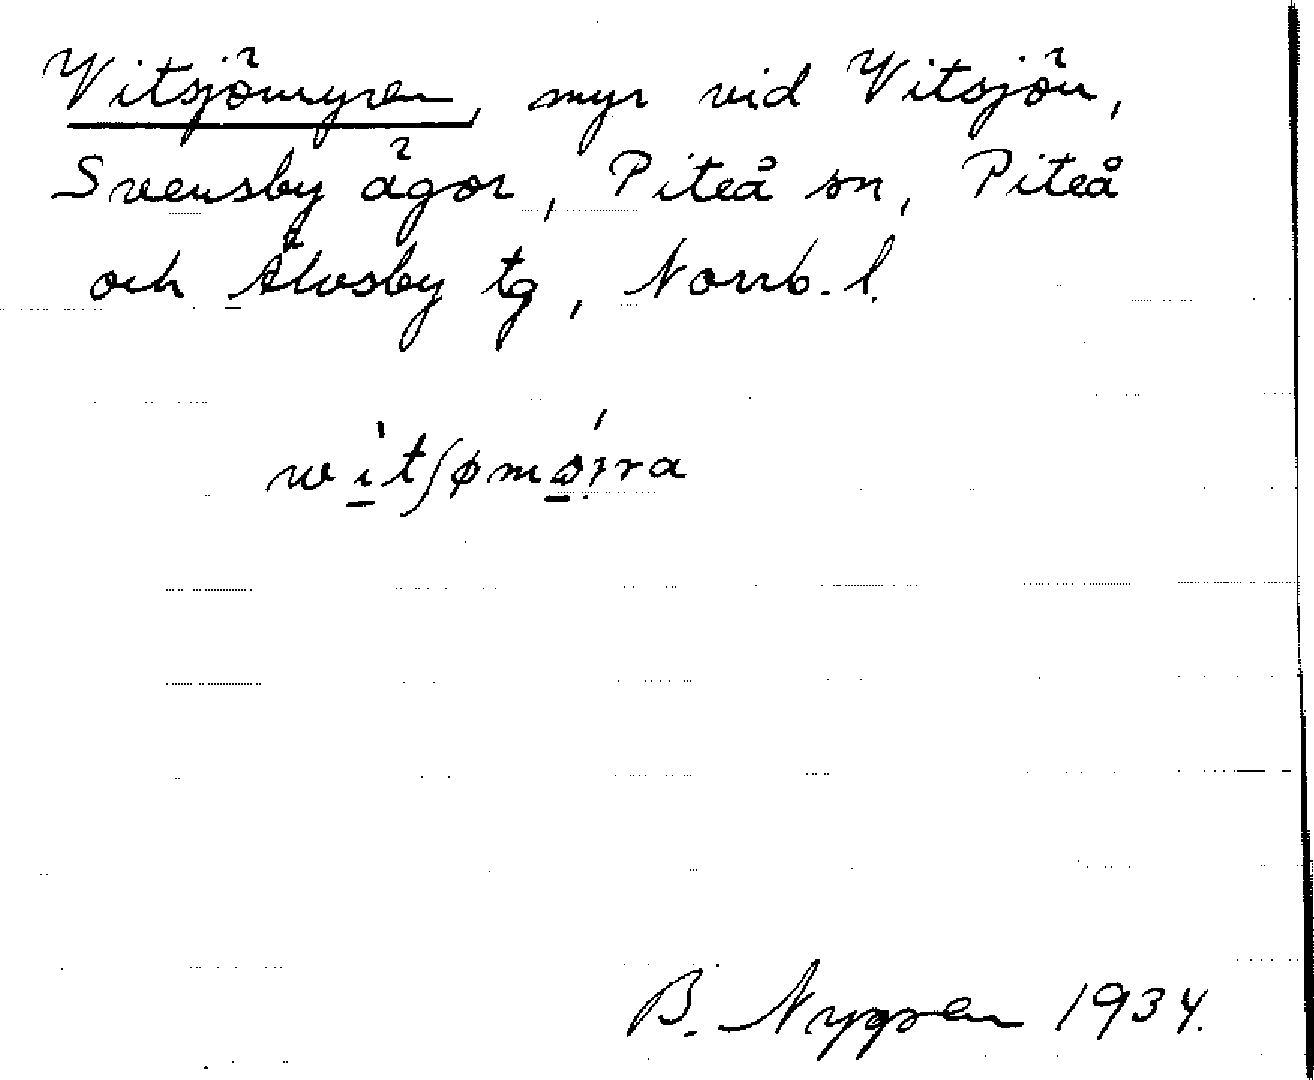 Vitsjömyren, myr vid Vitsjön,
Svensby ägor, Piteå sn, Piteå
och Älvsby tg, Norrb. l.
B. Nygren 1934.